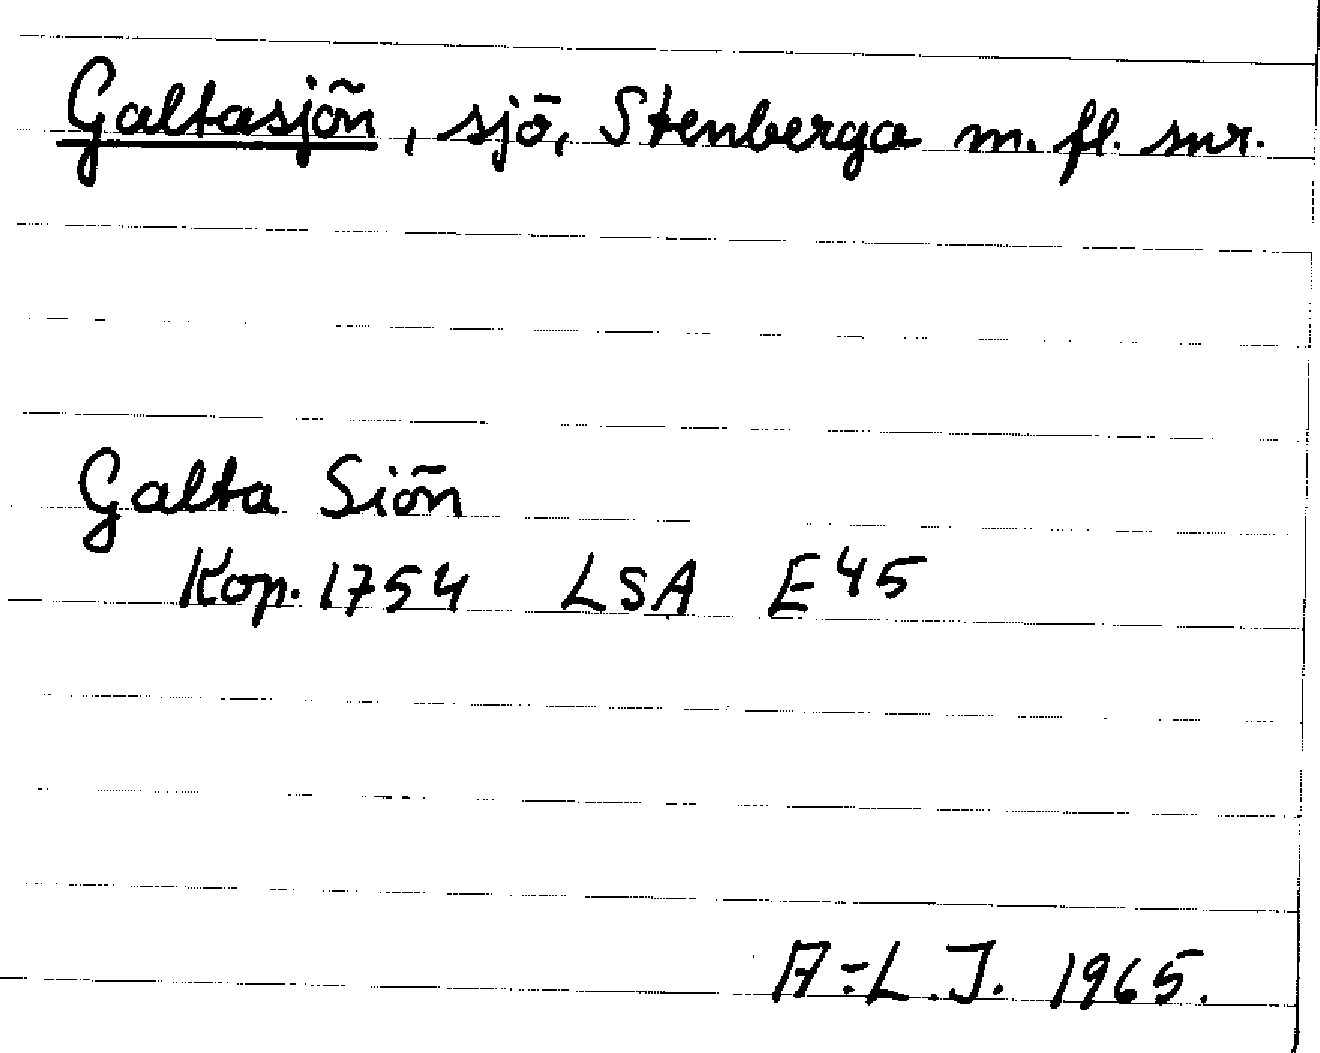 Galtasjön, sjö, Stenberga m. fl. snr.
Galta Siön
Kop. 1754 LSA E45
A-L.J. 1965.